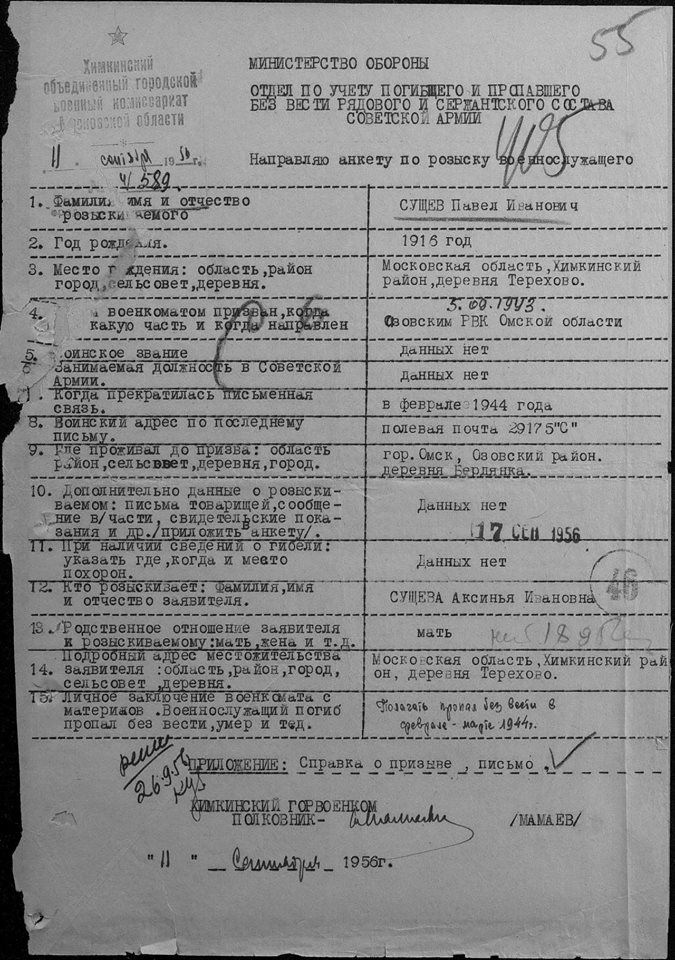 55
Химкинский
объединенный городской
военный комиссариат
Московской области
"11" сентября 1956 г.
4/589.
МИНИСТЕРСТВО ОБОРОНЫ
ОТДЕЛ ПО УЧЕТУ ПОГИБШЕГО И ПРОПАВШЕГО
БЕЗ ВЕСТИ РЯДОВОГО И СЕРЖАНТСКОГО СОСТАВА
СОВЕТСКОЙ АРМИИ
Направляю анкету по розыску военнослужащего
1. Фамилия имя и отчество
розыскиваемого
СУЩЕВ Павел Иванович
2. Год рождения.
1916 год
3. Место рождения: область,район
город,сельсовет,деревня.
Московская область,Химкинский
район,деревня Терехово.
4. военкоматом призван,когда
какую часть и когда направлен
5.09.1943.
Озовским РВК Омской области
5. Воинское звание
данных нет
Занимаемая должность в Советской
Армии.
данных нет
. Когда прекратилась письменная
связь.
в феврале 1944 года
8. Воинский адрес по последнему
письму.
полевая почта 29175"С"
9. Где проживал до призва: область
район,сельсввет,деревня,город.
гор.Омск, Озовский район.
деревня Бердянка.
10. Дополнительно данные о розыски-
ваемом: письма товарищей,сообще-
ние в/части, свидетельские пока-
зания и др./приложить в анкету/.
Данных нет
17 СЕН 1956
11. При наличии сведений о гибели:
указать где,когда и место
похорон.
Данных нет
46
12. Кто розыскивает: Фамилия,имя
и отчество заявителя.
СУЩЕВА Аксинья Ивановна
13. Родственное отношение заявителя
к розыскиваемому:мать,жена и т.д.
мать
14. Подробный адрес местожительства
заявителя :область,район,город,
сельсовет ,деревня.
Московская область,Химкинский рай
он, деревня Терехово.
15. Личное заключение военкомата с
материлов .Военнослужащий погиб
пропал без вести,умер и тед.
Полагать пропал без вести в
феврале - марте 1944г.
26.9.56
ПРИЛОЖЕНИЕ: Справка о призыве , письмо .
ХИМКИНСКИЙ ГОРВОЕНКОМ
ПОЛКОВНИК-
/МАМАЕВ/
"11" Сентября 1956г.